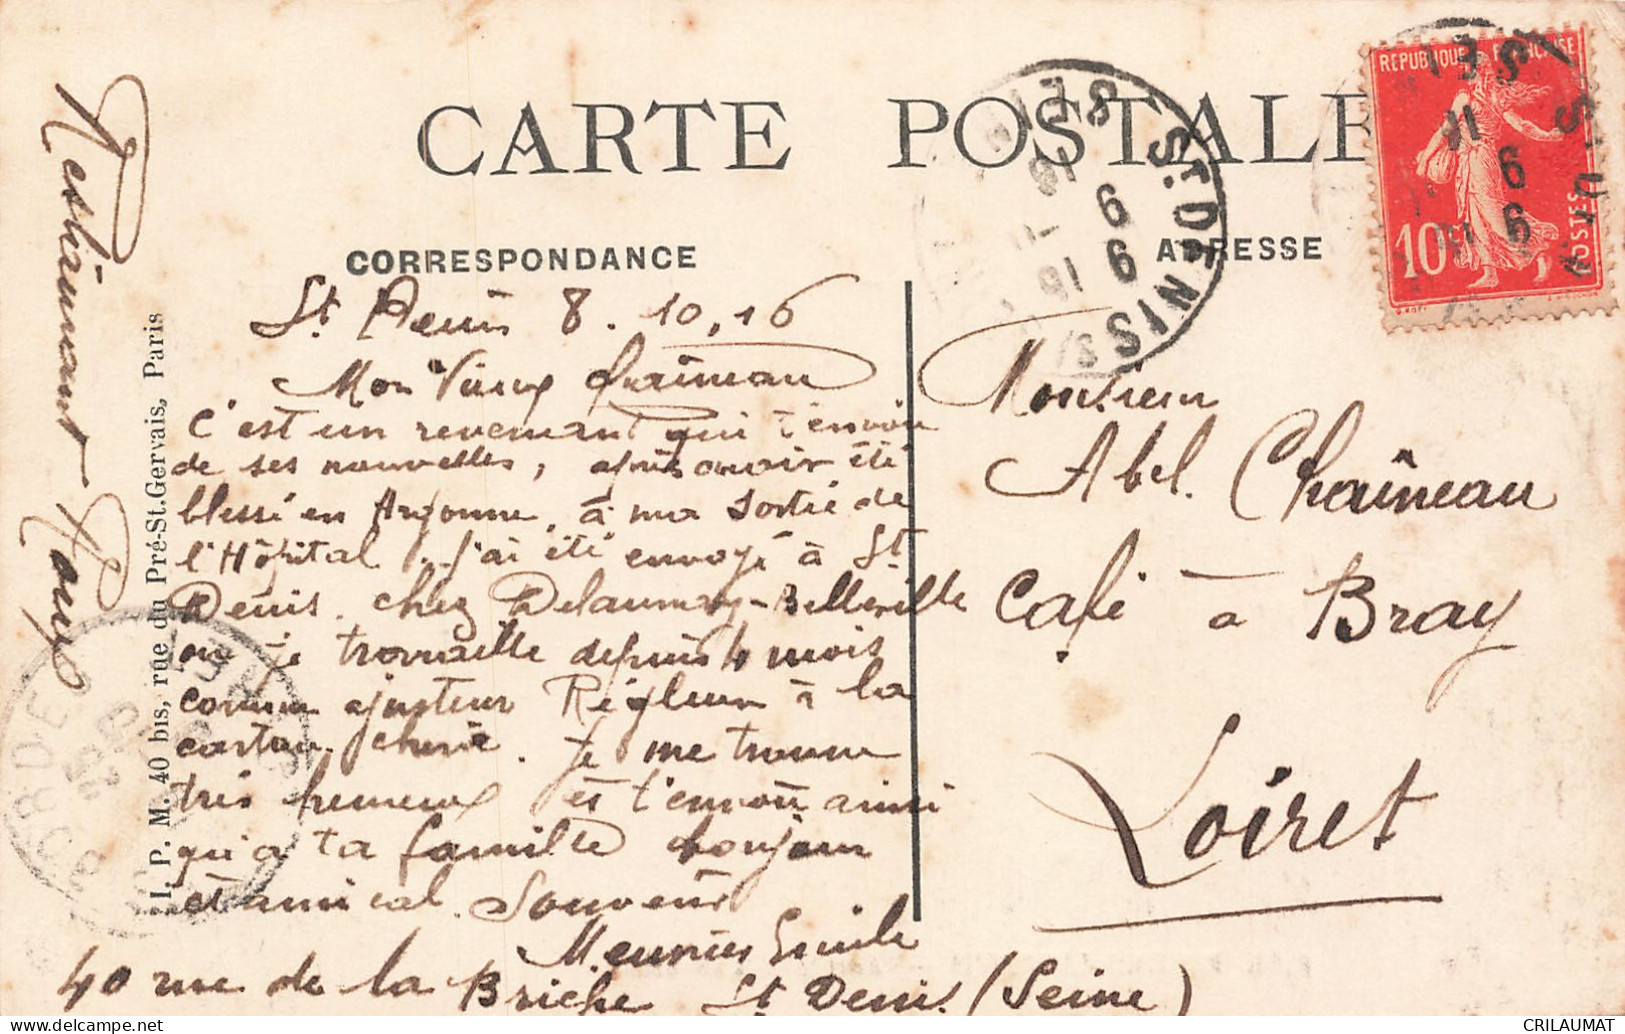 CARTE POSTALE
CORRESPONDANCE
ADRESSE
REPUBLIQUE FRANÇAISE
10c
POSTES
St DENIS S/ SEINE
16
9
9
16
St Denis 8.10.16
Mon Vieux Chaîneau
C'est un revenant qui t'envoie
de ses nouvelles, après avoir été
blessé en Argonne, à ma sortie de
l'Hôpital, j'ai été envoyé à St
Denis chez Delaunay-Belleville
ou je travaille depuis 4 mois
comme ajusteur Régleur à la
cartoucherie. Je me trouve
très heureux et t'envoie ainsi
qu'a ta famille bonjour
et amical Souvenir
Meunier Emile
40 rue de la Briche St Denis (Seine)
Monsieur
Abel Chaîneau
Café à Bray
Loiret
I. P. M. 40 bis, rue du Pré-St.Gervais, Paris
CRILAUMAT